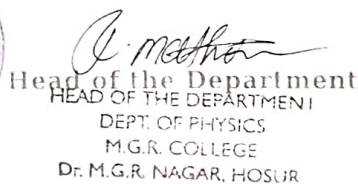 Head of the Department
HEAD OF THE DEPARTMENT
DEPT. OF PHYSICS
M.G.R. COLLEGE
Dr. M.G.R. NAGAR, HOSUR